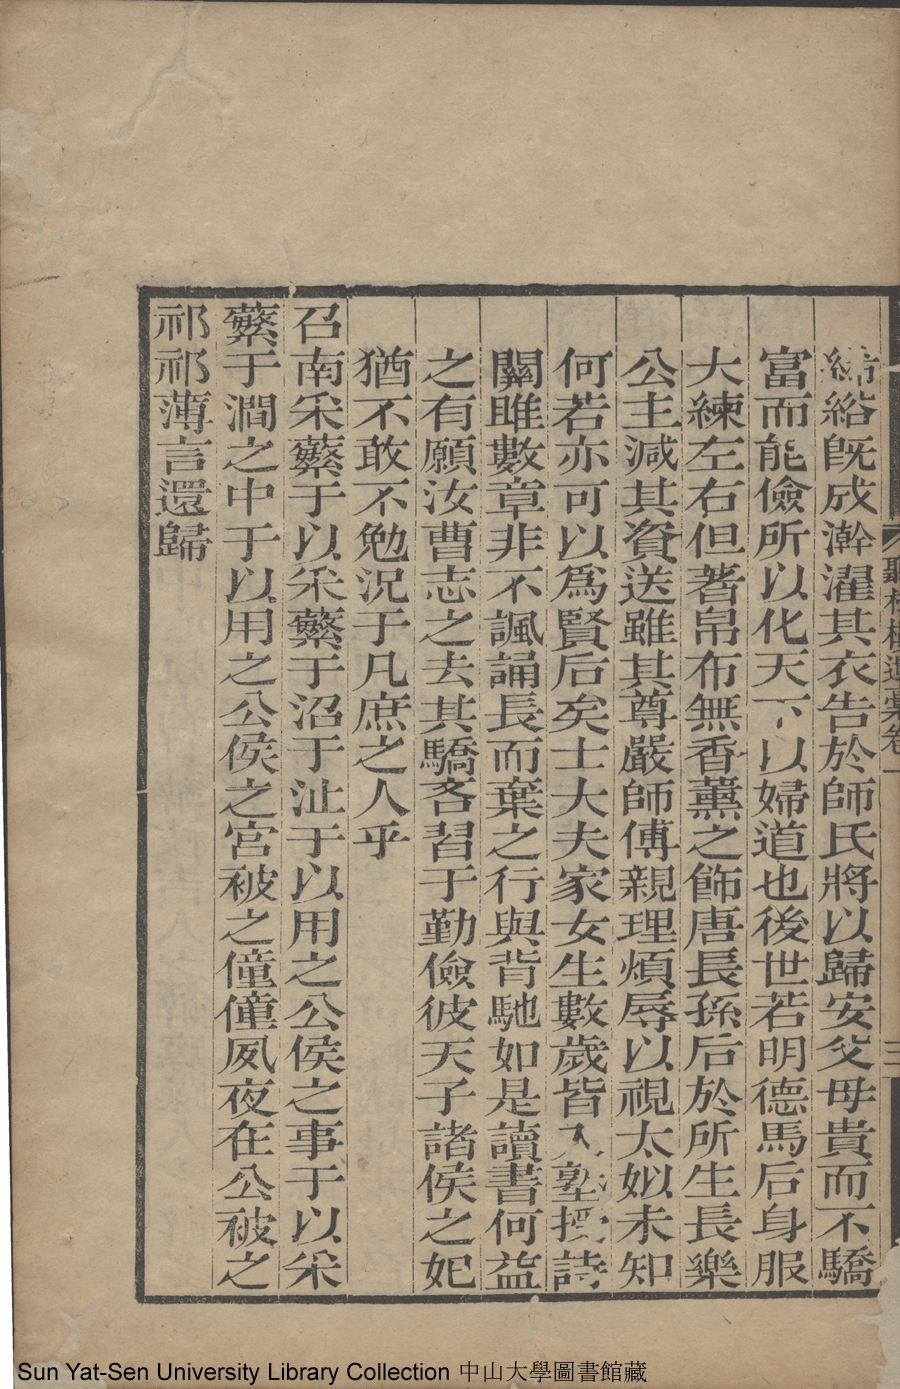 絺綌旣成澣濯其衣告於師氏將以歸安父母貴而不驕
富而能儉所以化天下以婦道也後世若明德馬后身服
大練左右但著帛布無香薰之飾唐長孫后於所生長樂
公主減其資送雖其尊嚴師傅親理煩辱以視太姒未知
何若亦可以爲賢后矣士大夫家女生數歲皆入塾授詩
關雎數章非不諷誦長而棄之行與背馳如是讀書何益
之有願汝曹志之去其驕吝習于勤儉彼天子諸侯之妃
猶不敢不勉況于凡庶之人乎
召南采蘩于以采蘩于沼于沚于以用之公侯之事于以采
蘩于澗之中于以用之公侯之宮被之僮僮夙夜在公被之
祁祁薄言還歸
卷一
三
Sun Yat-Sen University Library Collection 中山大學圖書館藏